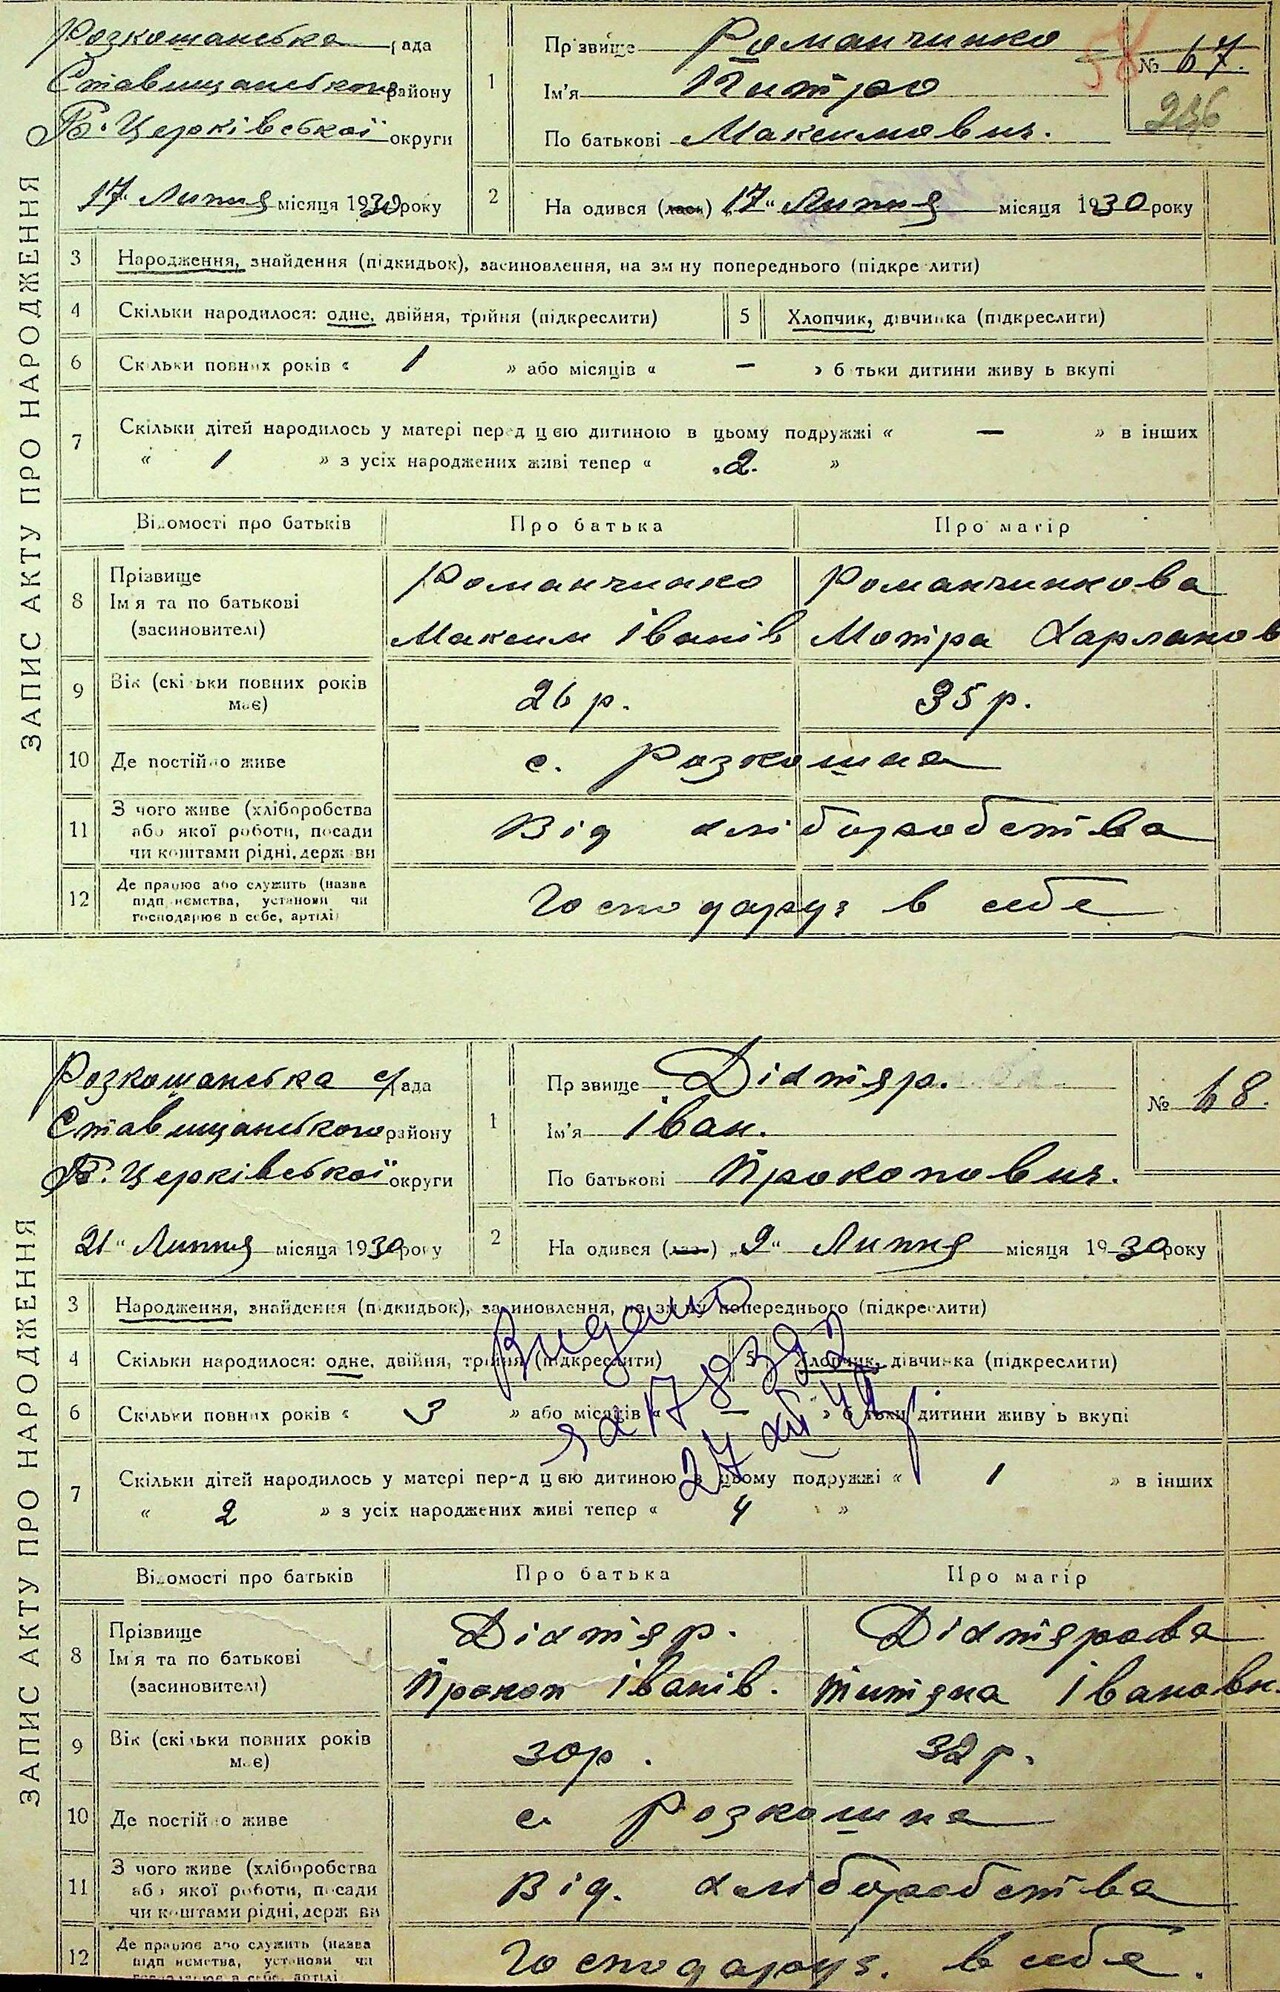 ЗАПИС АКТУ ПРО НАРОДЖЕННЯ
Розкошанська рада
Ставищанського району
Б. Церківської округи
17 Липня місяця 1930 року
1 Прізвище Романчинко
Ім'я Питро
По батькові Максимович.
№ 67.
58
236
2 На одився (лась) „17" Липня місяця 1930 року
3 Народження, знайдення (підкидьок), засиновлення, на зм ну попереднього (підкре лити)
4 Скільки народилося: одне, двійня, трійня (підкреслити) 5 Хлопчик, дівчинка (підкреслити)
6 Скільки повних років « 1 » або місяців « — » б тьки дитини живу ь вкупі
7 Скільки дітей народилось у матері перед цею дитиною в цьому подружжі « — » в інших
« 1 » з усіх народжених живі тепер « 2. »
Відомості про батьків Про батька Про матір
8 Прізвище Романчинко Романчинкова
Ім'я та по батькові
(засиновителі) Максим Іванів Мотря Харланов
9 Вік (скільки повних років має) 26 р. 35 р.
10 Де постійно живе с. Розкошна
11 З чого живе (хліборобства
або якої роботи, посади Від хліборобства
чи коштами рідні, держ ви
12 Де працює або служить (назва
підп иємства, установи чи Господарує в себе
господарює в себе, артілі)
ЗАПИС АКТУ ПРО НАРОДЖЕННЯ
Розкошанська с/рада
Ставищанського району
Б. Церківської округи
21" Липня місяця 1930 року
1 Пр звище Діхтяр.
Ім'я Іван.
По батькові Прокопович.
№ 68.
2 На одився (лась) „9" Липня місяця 1930 року
3 Народження, знайдення (підкидьок), засиновлення, на зм ну попереднього (підкреслити)
4 Скільки народилося: одне, двійня, трійня (підкреслити) 5 Хлопчик, дівчинка (підкреслити)
6 Скільки повних років « 3 » або місяців « — » б тьки дитини живу ь вкупі
7 Скільки дітей народилось у матері пер-д цею дитиною в цьому подружжі « 1 » в інших
« 2 » з усіх народжених живі тепер « 4 »
Видано
за 178392
27 XII
Відомості про батьків Про батька Про матір
8 Прізвище Діхтяр. Діхтярова
Ім'я та по батькові
(засиновителі) Прокоп Іванів. Титяна Івановн.
9 Вік (скільки повних років має) 30р. 32 р.
10 Де постійно живе с. Розкошна
11 З чого живе (хліборобства
або якої роботи, посади Від. хліборобства
чи коштами рідні, держ ви
12 Де працює або служить (назва
підп иємства, установи чи Господарує. в себе.
господарює в себе, артілі